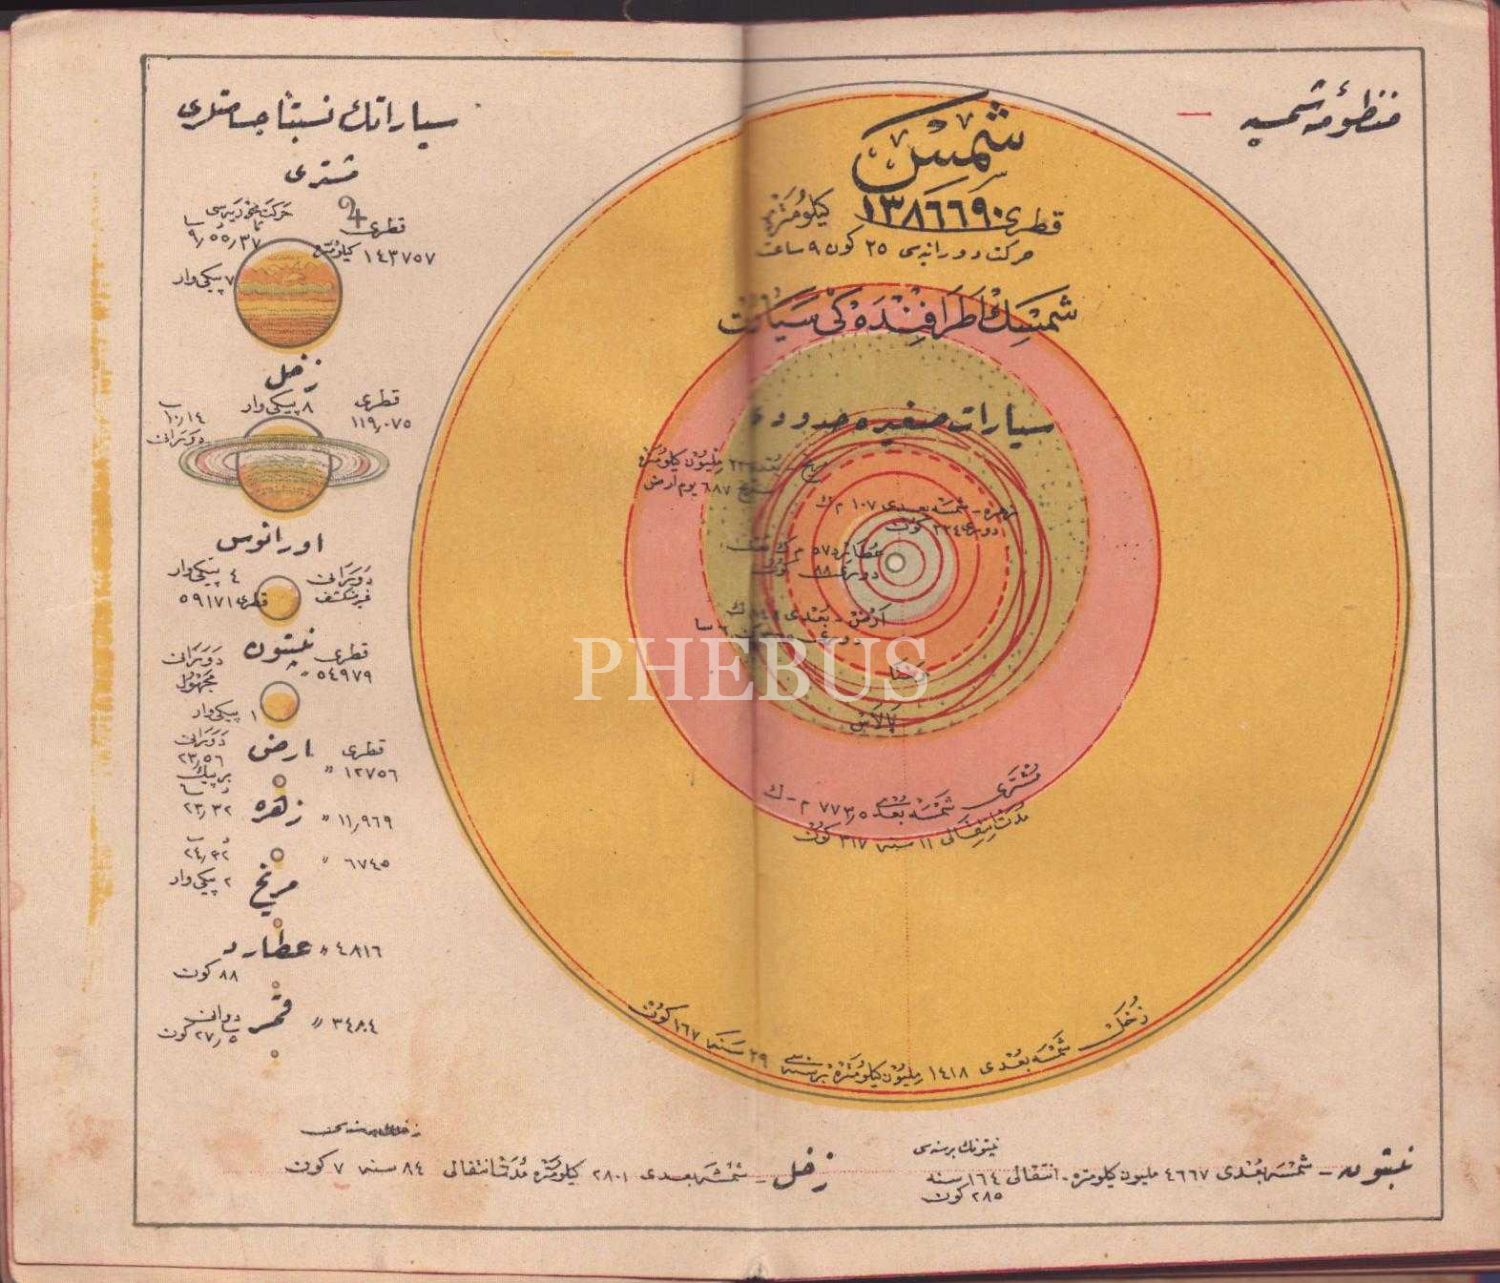 منظومهٔ شمسیه
شمس
قطری ١٣٨٦٦٩٠ کیلومتره
حرکت دورانیه‌سی ٢٥ کون ٩ ساعت
شمسك اطرافنده کی سیارات
سیارات صغیره حدودی
مریخ
ملیون کیلومتره
٦٨٧ یوم ارض
زهره - شمسه بعدی ١٠٧ م ك
دوری ٢٢٤ کون
عطارد ٥٧ م ك
دوری ٨٨ کون
ارض - بعدی
وستا
پالاس
مشتری شمسه بعدی ٧٧٣٫٥ م - ك
مدت انتقالی ١١ سنه ٣١٧ کون
زحل شمسه بعدی ١٤١٨ ملیون کیلومتره بر سنه‌سی ٢٩ سنه ١٦٧ کون
نپتونك بر سنه‌سی
نپتون - شمسه بعدی ٤٦٦٧ ملیون کیلومتره - انتقالی ١٦٤ سنه
٢٨٥ کون
زحل - شمسه بعدی ٢٨٠١ کیلومتره مدت انتقالی ٨٤ سنه ٧ کون
سیاراتك نسبتاً جسامتلری
مشتری
♃
قطری
١٤٣٧٥٧ کیلومتره
حرکت محوریه‌سی
٩٫٥٥٫٣٧
٧ پیکی وار
زحل
٨ پیکی وار
قطری
١١٩٫٠٧٥
١٠٫١٤
دورانی
اورانوس
٤ پیکی وار
دورانی
غیر منکشف
قطری ٥٩١٧١
نپتون
قطری
٥٤٩٧٩ "
دورانی
مجهول
١ پیکی وار
ارض
قطری
١٢٧٥٦ "
دورانی
٢٣٫٥٦
بر پیك
زهره
١١٫٩٦٩ "
٢٣٫٣٢
٦٧٤٥ "
مریخ
٢ پیکی وار
عطارد
٤٨١٦ "
٨٨ کون
قمر
٣٤٨٤ "
دورانی
٢٧٫٥ کون
PHEBUS